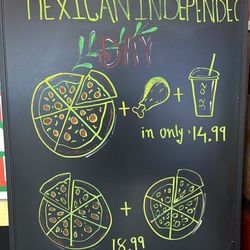 MEXICAN INDEPENDEC
DAY
+ +
32 oz
in only 14.99
+
18.99